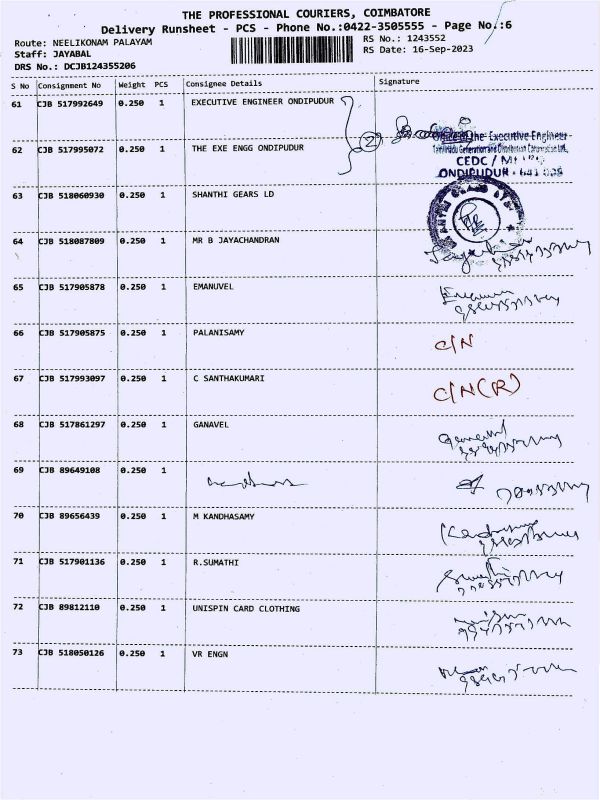 THE PROFESSIONAL COURIERS, COIMBATORE
Delivery Runsheet - PCS - Phone No.:0422-3505555 - Page No.:6
Route: NEELIKONAM PALAYAM RS No.: 1243552
Staff: JAYABAL RS Date: 16-Sep-2023
DRS No.: DCJB124355206
S No Consignment No Weight PCS Consignee Details Signature
61 CJB 517992649 0.250 1 EXECUTIVE ENGINEER ONDIPUDUR
2
Office of the Executive Engineer
62 CJB 517995072 0.250 1 THE EXE ENGG ONDIPUDUR Tamilnadu Generation and Distribution Corporation Ltd.,
CEDC /
ONDIPUDUR - 641 008
63 CJB 518060930 0.250 1 SHANTHI GEARS LD
64 CJB 518087809 0.250 1 MR B JAYACHANDRAN
65 CJB 517905878 0.250 1 EMANUVEL
66 CJB 517905875 0.250 1 PALANISAMY C/N
67 CJB 517993097 0.250 1 C SANTHAKUMARI C/N(R)
68 CJB 517861297 0.250 1 GANAVEL
69 CJB 89649108 0.250 1
70 CJB 89656439 0.250 1 M KANDHASAMY
71 CJB 517901136 0.250 1 R.SUMATHI
72 CJB 89812110 0.250 1 UNISPIN CARD CLOTHING
73 CJB 518050126 0.250 1 VR ENGN